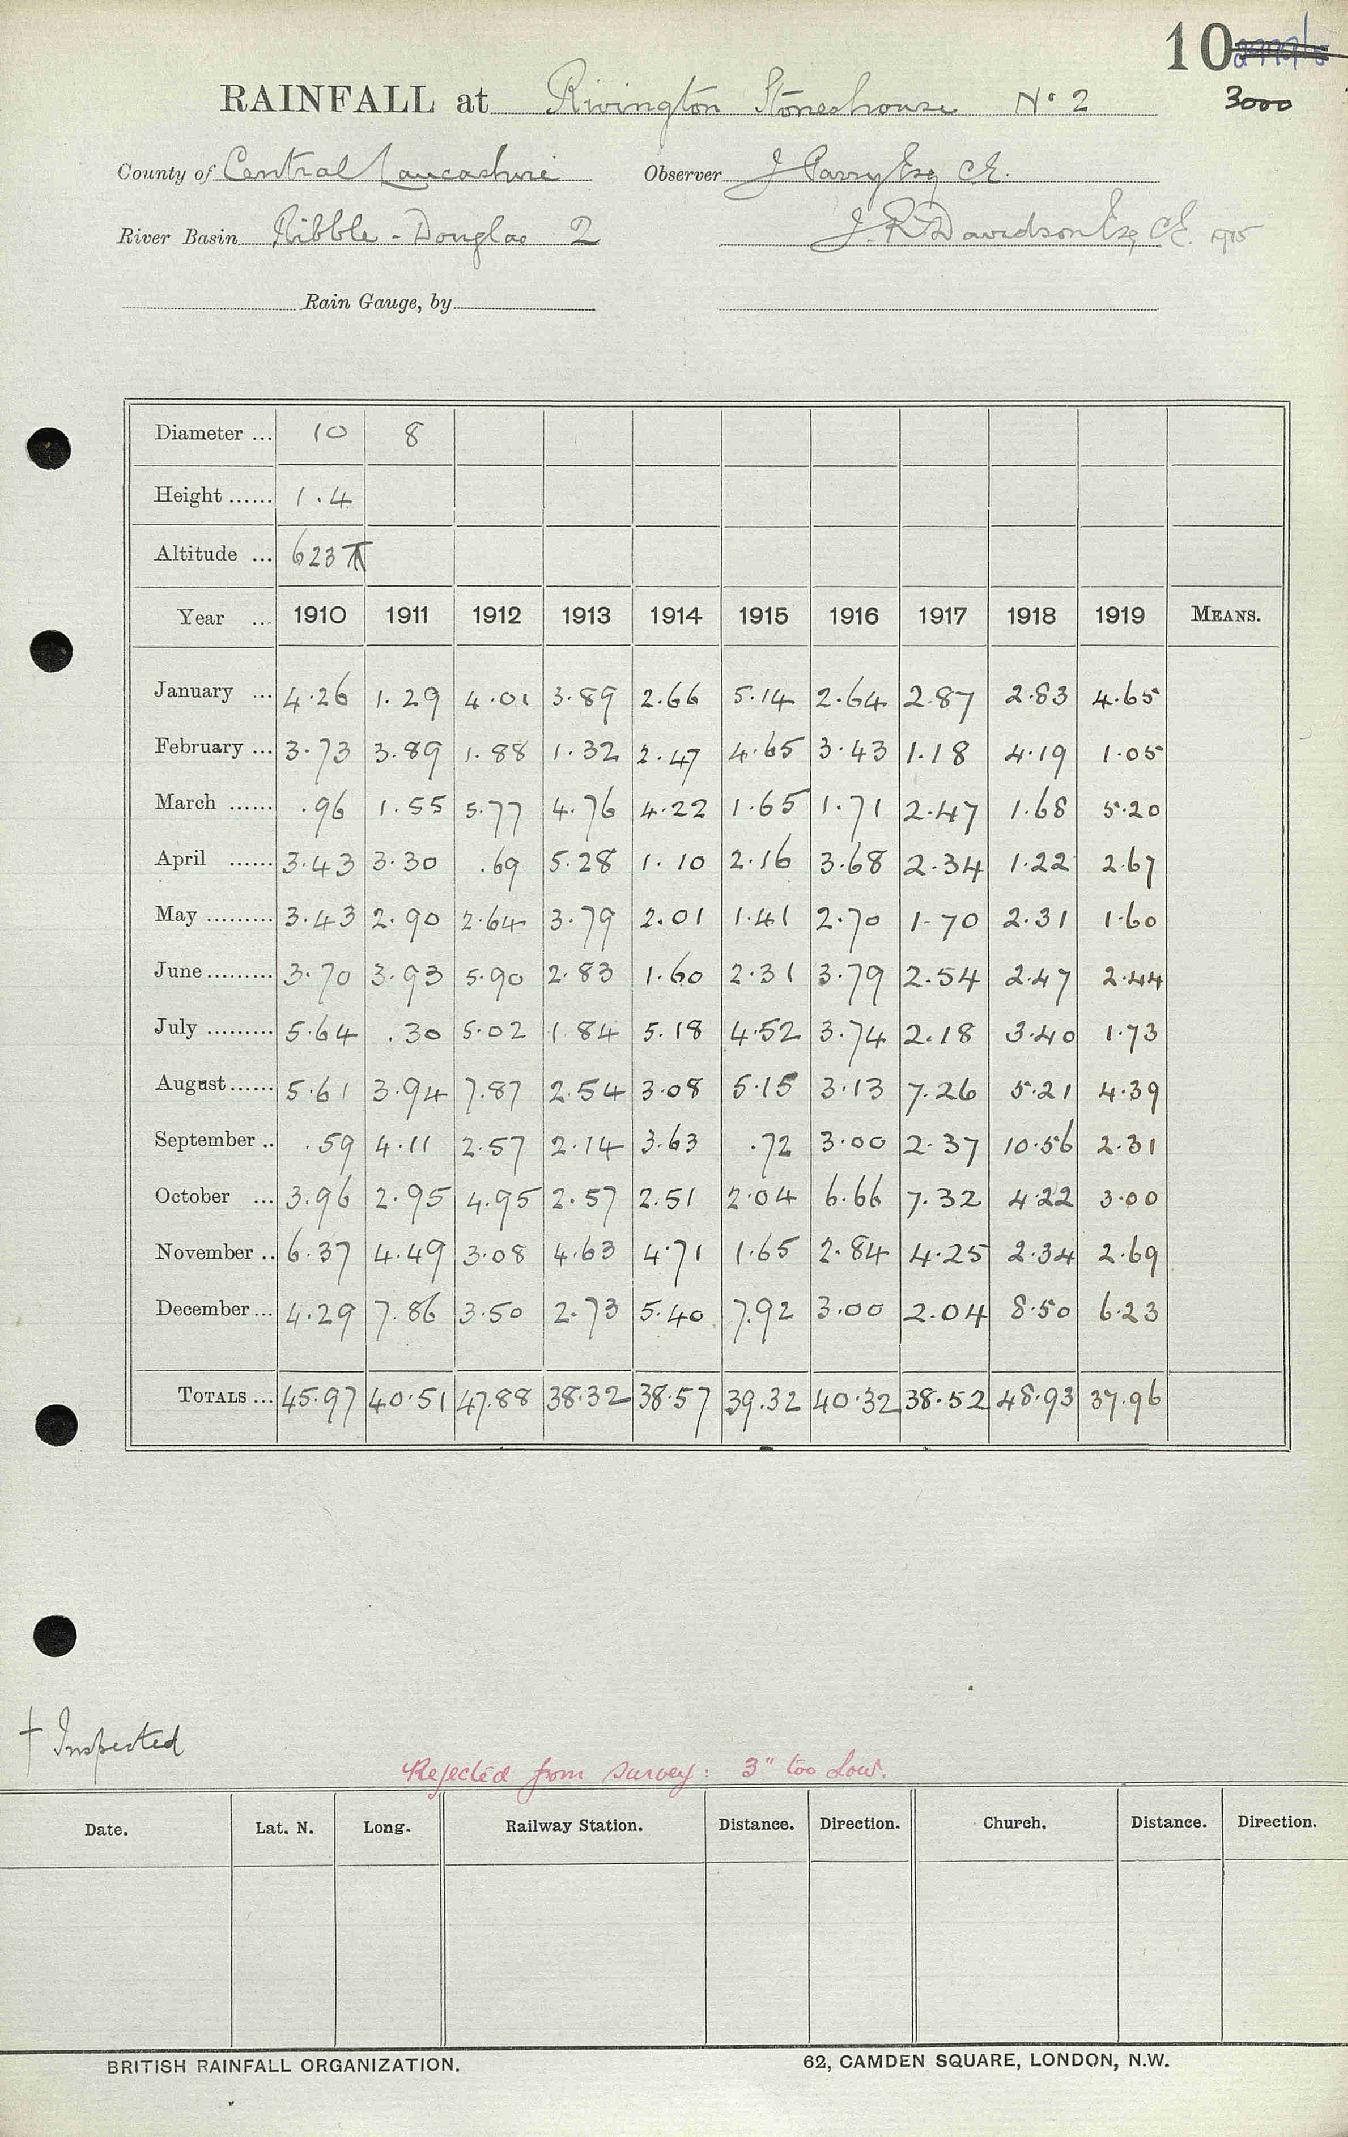 10
RAINFALL at Rivington Stoneshouse No 2 3000
County of Central Lancashire Observer J Parry Esq CE.
River Basin Ribble - Douglas 2 J. R Davidson Esq CE. 1915
Rain Gauge, by
Diameter ... 10 8
Height ...... 1.4
Altitude ... 623
Year ... 1910 1911 1912 1913 1914 1915 1916 1917 1918 1919 MEANS.
January ... 4.26 1.29 4.01 3.89 2.66 5.14 2.64 2.87 2.83 4.65
February ... 3.73 3.89 1.88 1.32 2.47 4.65 3.43 1.18 4.19 1.05
March ...... .96 1.55 5.77 4.76 4.22 1.65 1.71 2.47 1.68 5.20
April ...... 3.43 3.30 .69 5.28 1.10 2.16 3.68 2.34 1.22 2.67
May ......... 3.43 2.90 2.64 3.79 2.01 1.41 2.70 1.70 2.31 1.60
June ......... 3.70 3.93 5.90 2.83 1.60 2.31 3.79 2.54 2.47 2.44
July ......... 5.64 .30 5.02 1.84 5.18 4.52 3.74 2.18 3.40 1.73
August ...... 5.61 3.94 7.87 2.54 3.08 5.15 3.13 7.26 5.21 4.39
September .. .59 4.11 2.57 2.14 3.63 .72 3.00 2.37 10.56 2.31
October ... 3.96 2.95 4.95 2.57 2.51 2.04 6.66 7.32 4.22 3.00
November .. 6.37 4.49 3.08 4.63 4.71 1.65 2.84 4.25 2.34 2.69
December ... 4.29 7.86 3.50 2.73 5.40 7.92 3.00 2.04 8.50 6.23
TOTALS ... 45.97 40.51 47.88 38.32 38.57 39.32 40.32 38.52 48.93 37.96
† Inspected
Rejected from survey: 3" too low.
Date. Lat. N. Long. Railway Station. Distance. Direction. Church. Distance. Direction.
BRITISH RAINFALL ORGANIZATION. 62, CAMDEN SQUARE, LONDON, N.W.